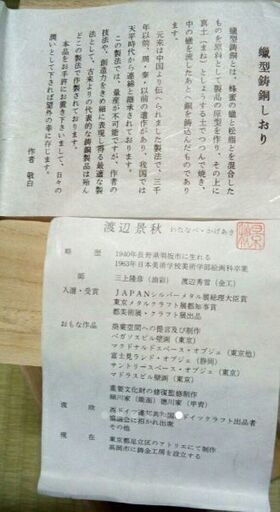 蠟型鋳銅しおり
蠟型鋳銅とは、蜂蜜の蠟と松脂とを混合した
ものを原料として製品の原型を作り、その上に
真土(まね)としょうする土でつつんで焼き、
中の蠟を流したあとへ銅を鋳込んだものであり
ます。
元来は中国より伝へられました製法で、三千
年以前、周・秦・以前の遺作があり、我国では
天平時代から連綿と継承されて居ります。
この製法では、量産が不可能ですが、作者の
技法や、創造力をきめ細に表現し得る最適な製
法として、古来よりの代表的な鋳銅製品は殆ん
ど此の製法で作られて居ります。
本品をお手許にお置き下さいまして、日々の
潤いとして下されば望外の幸に存じます。
作者 敬白
渡辺景秋 わたなべ・かげあき
略 歴 1940年長野県須坂市に生れる
1963年日本美術学校美術学部絵画科卒業
師 三上隆彦(油彩) 渡辺秀雪(金工)
入選・受賞 JAPANシルバーメタル展総理大臣賞
東京メタルクラフト展都知事賞
都美術展・クラフト展出品
おもな作品 商業空間への提言及び制作
ペガソスビル壁画(東京)
マクドナルドスペース・オブジェ(東京他)
富士見ランド・オブジェ(静岡)
サントリースペース・オブジェ(東京)
マドラスビル壁画(東京)
重要文化財の修復監修制作
細川家(能面)徳川家(甲冑)
西ドイツ
ドイツクラフト出品者
協議会に招かれ出席
その他
現 在 東京都足立区のアトリエにて制作
高岡市に鋳金工房を設立する